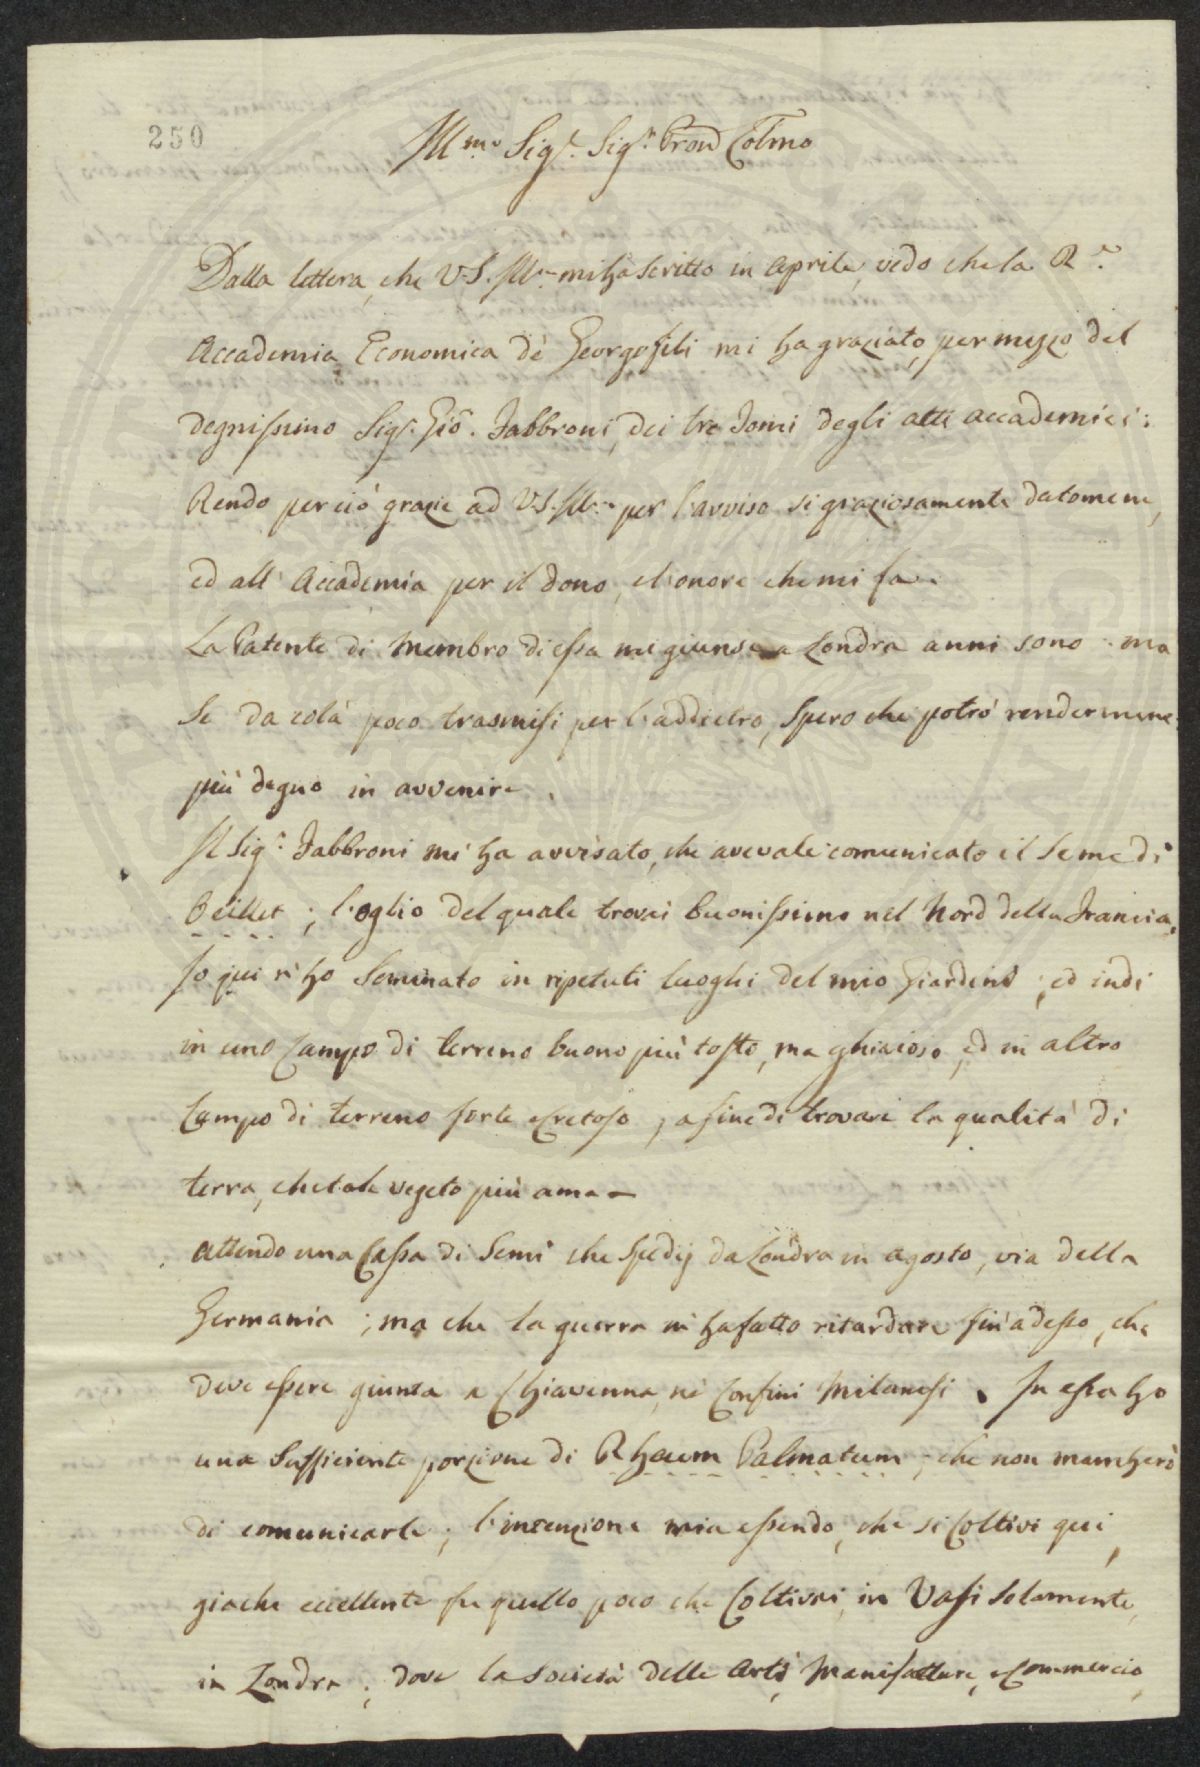 250
Ill.mo Sig.r Sig.r Pron Colmo
Dalla lettera, che V.S. Ill.ma mi ha scritto in Aprile, vedo che la R.e
Accademia Economica de' Georgofili mi ha graziato, per mezzo del
degnissimo Sig.r Gio. Fabbroni, dei tre Tomi degli atti accademici:
Rendo perciò grazie ad V.S. Ill.ma per l'avviso sì graziosamente datomene,
ed all' Accademia per il dono, e l'onore che mi fa.
La Patente di Membro di essa mi giunse a Londra anni sono: ma
se da colà poco trasmisi per l'addietro, spero che potrò rendermene
più degno in avvenire.
Il Sig.r Fabbroni mi ha avvisato, che avevale comunicato il seme di
Oeillet; l'oglio del quale trovai buonissimo nel Nord della Francia.
Io qui n'ho seminato in ripetuti luoghi del mio Giardino; ed indi
in uno Campo di terreno buono più tosto, ma ghiaioso, ed in altro
Campo di terreno forte e cretoso, a fine di trovare la qualità di
terra, che tale vegeto più ama—
Attendo una Cassa di Semi che spedij da Londra in agosto, via della
Germania; ma che la guerra m'ha fatto ritardare fin'adesso, che
deve essere giunta a Chiavenna, ne' Confini Milanesi. In essa ho
una sufficiente porzione di Rheum Palmatum, che non mancherò
di comunicarle; l'intenzione mia essendo, che si coltivi qui,
giache eccellente fu quello poco che coltivai, in Vasi solamente,
in Londra; dove la Società delle Arti, Manifatture, e Commercio,